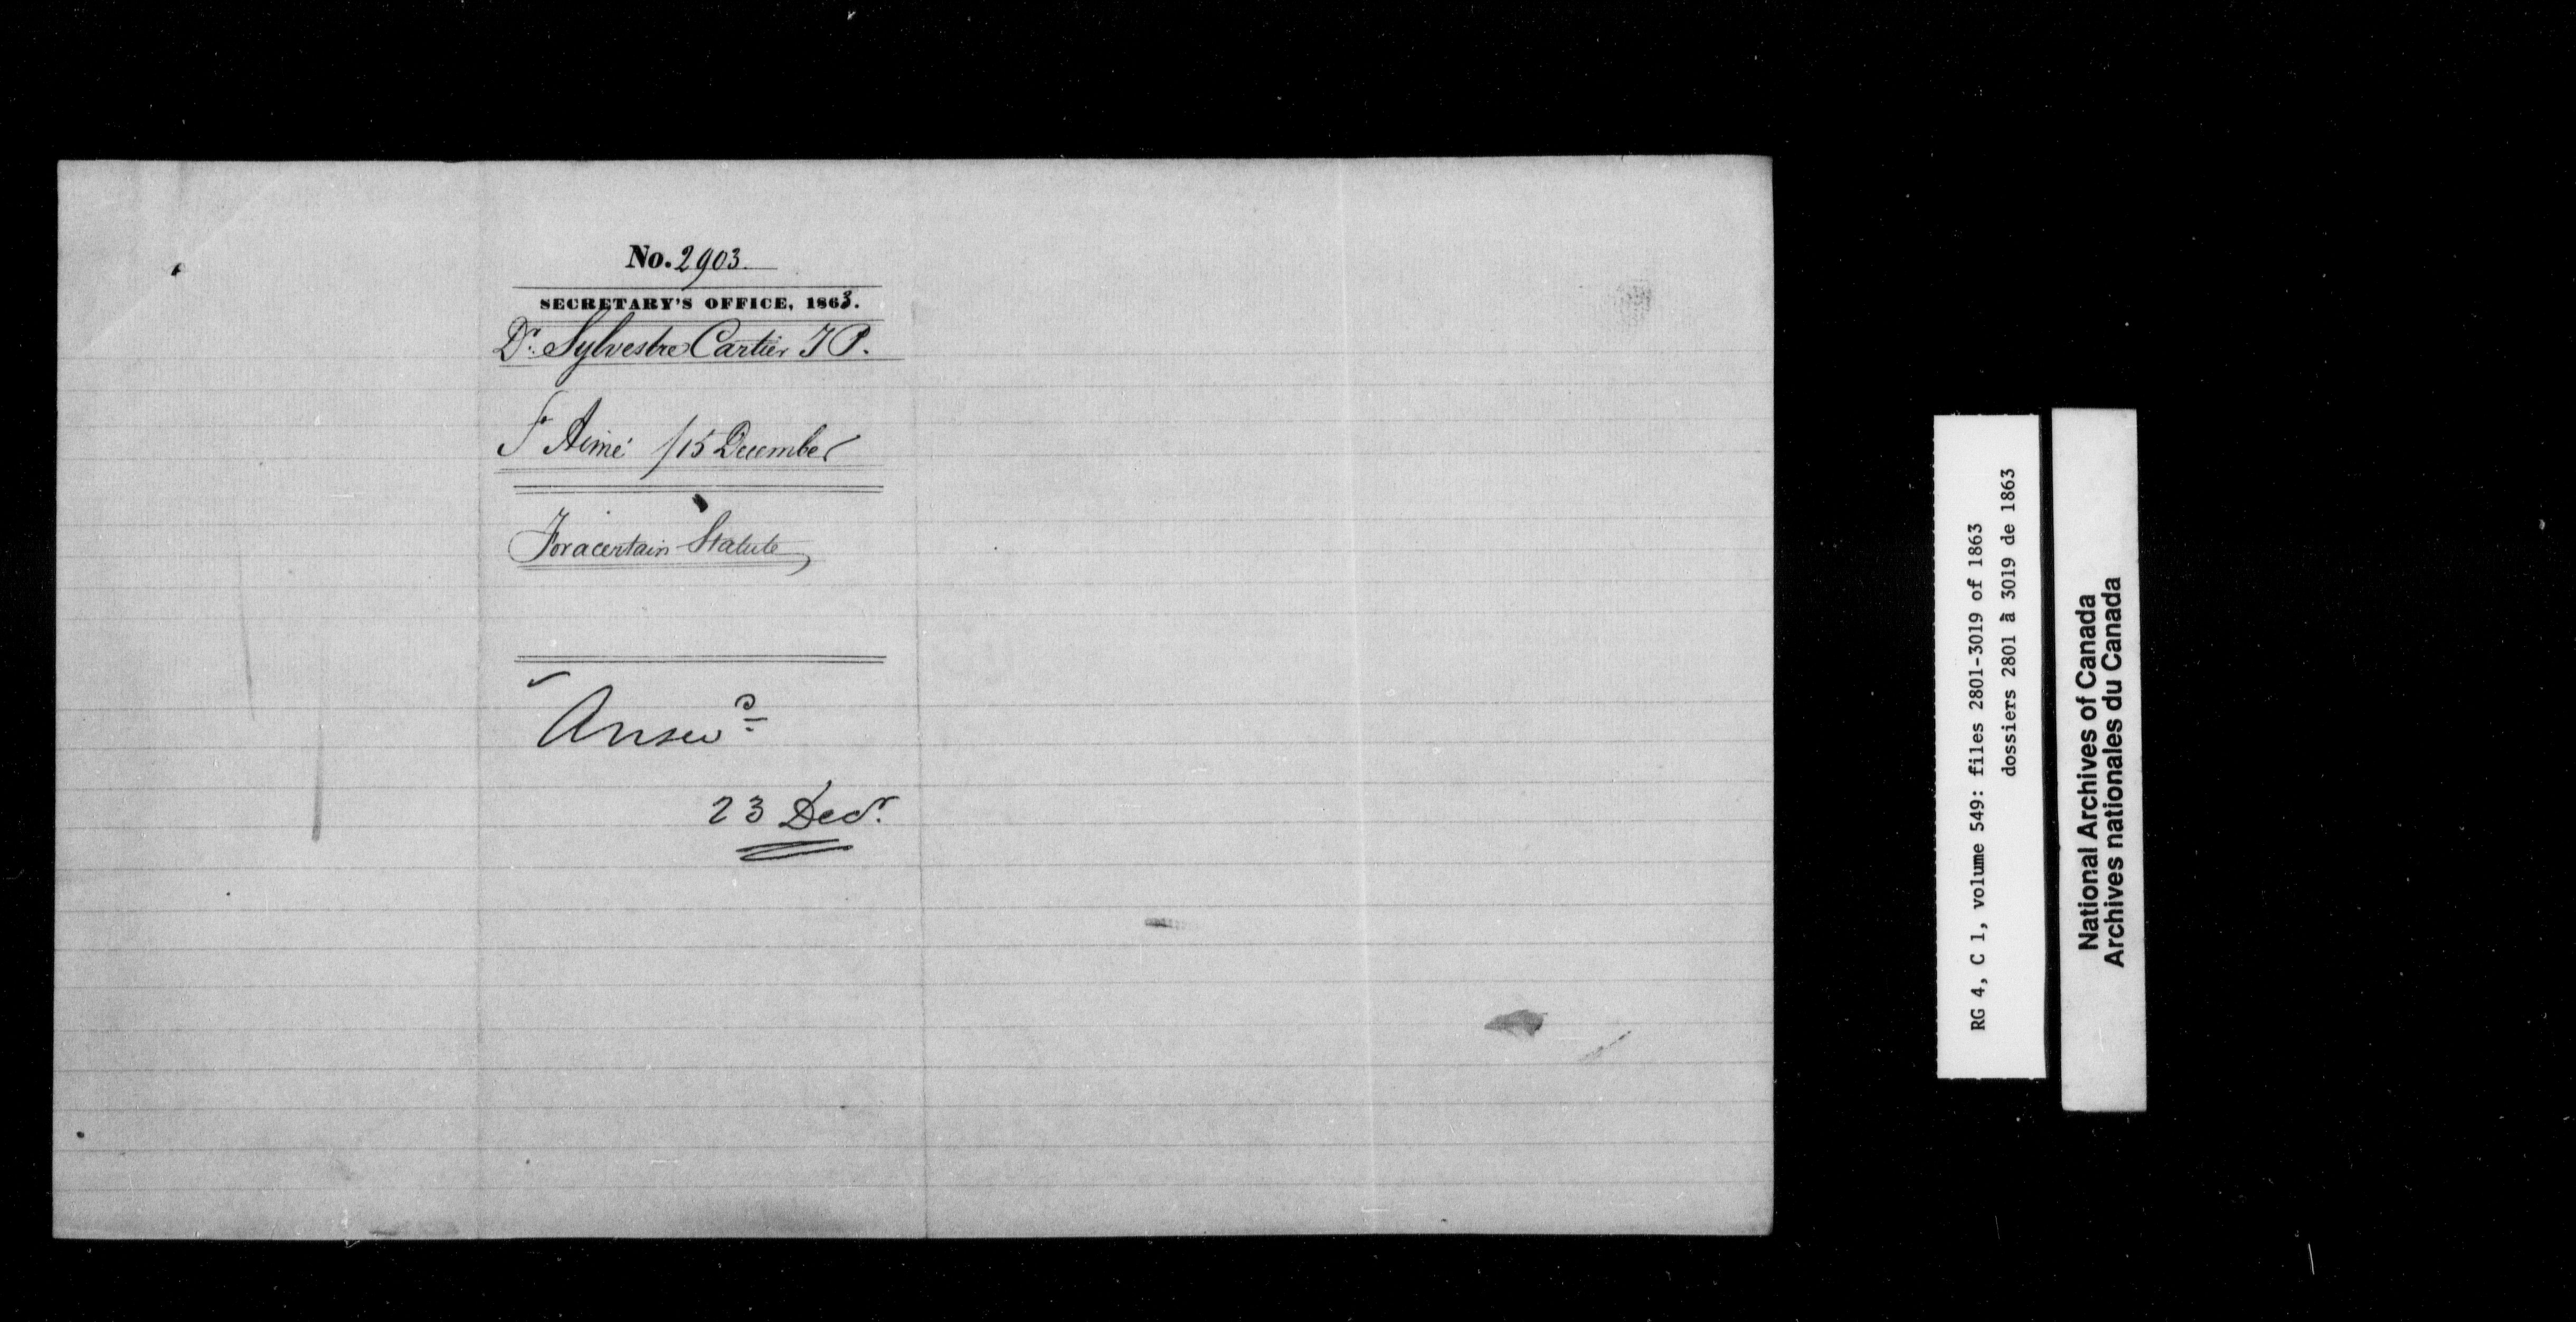 No. 2903.
SECRETARY'S OFFICE, 1863.
Dr. Sylvestre Cartier J P.
St Aimé /15 December
For a certain Statute
Answd
23 Decr.
RG 4, C 1, volume 549: files 2801-3019 of 1863
dossiers 2801 à 3019 de 1863
National Archives of Canada
Archives nationales du Canada